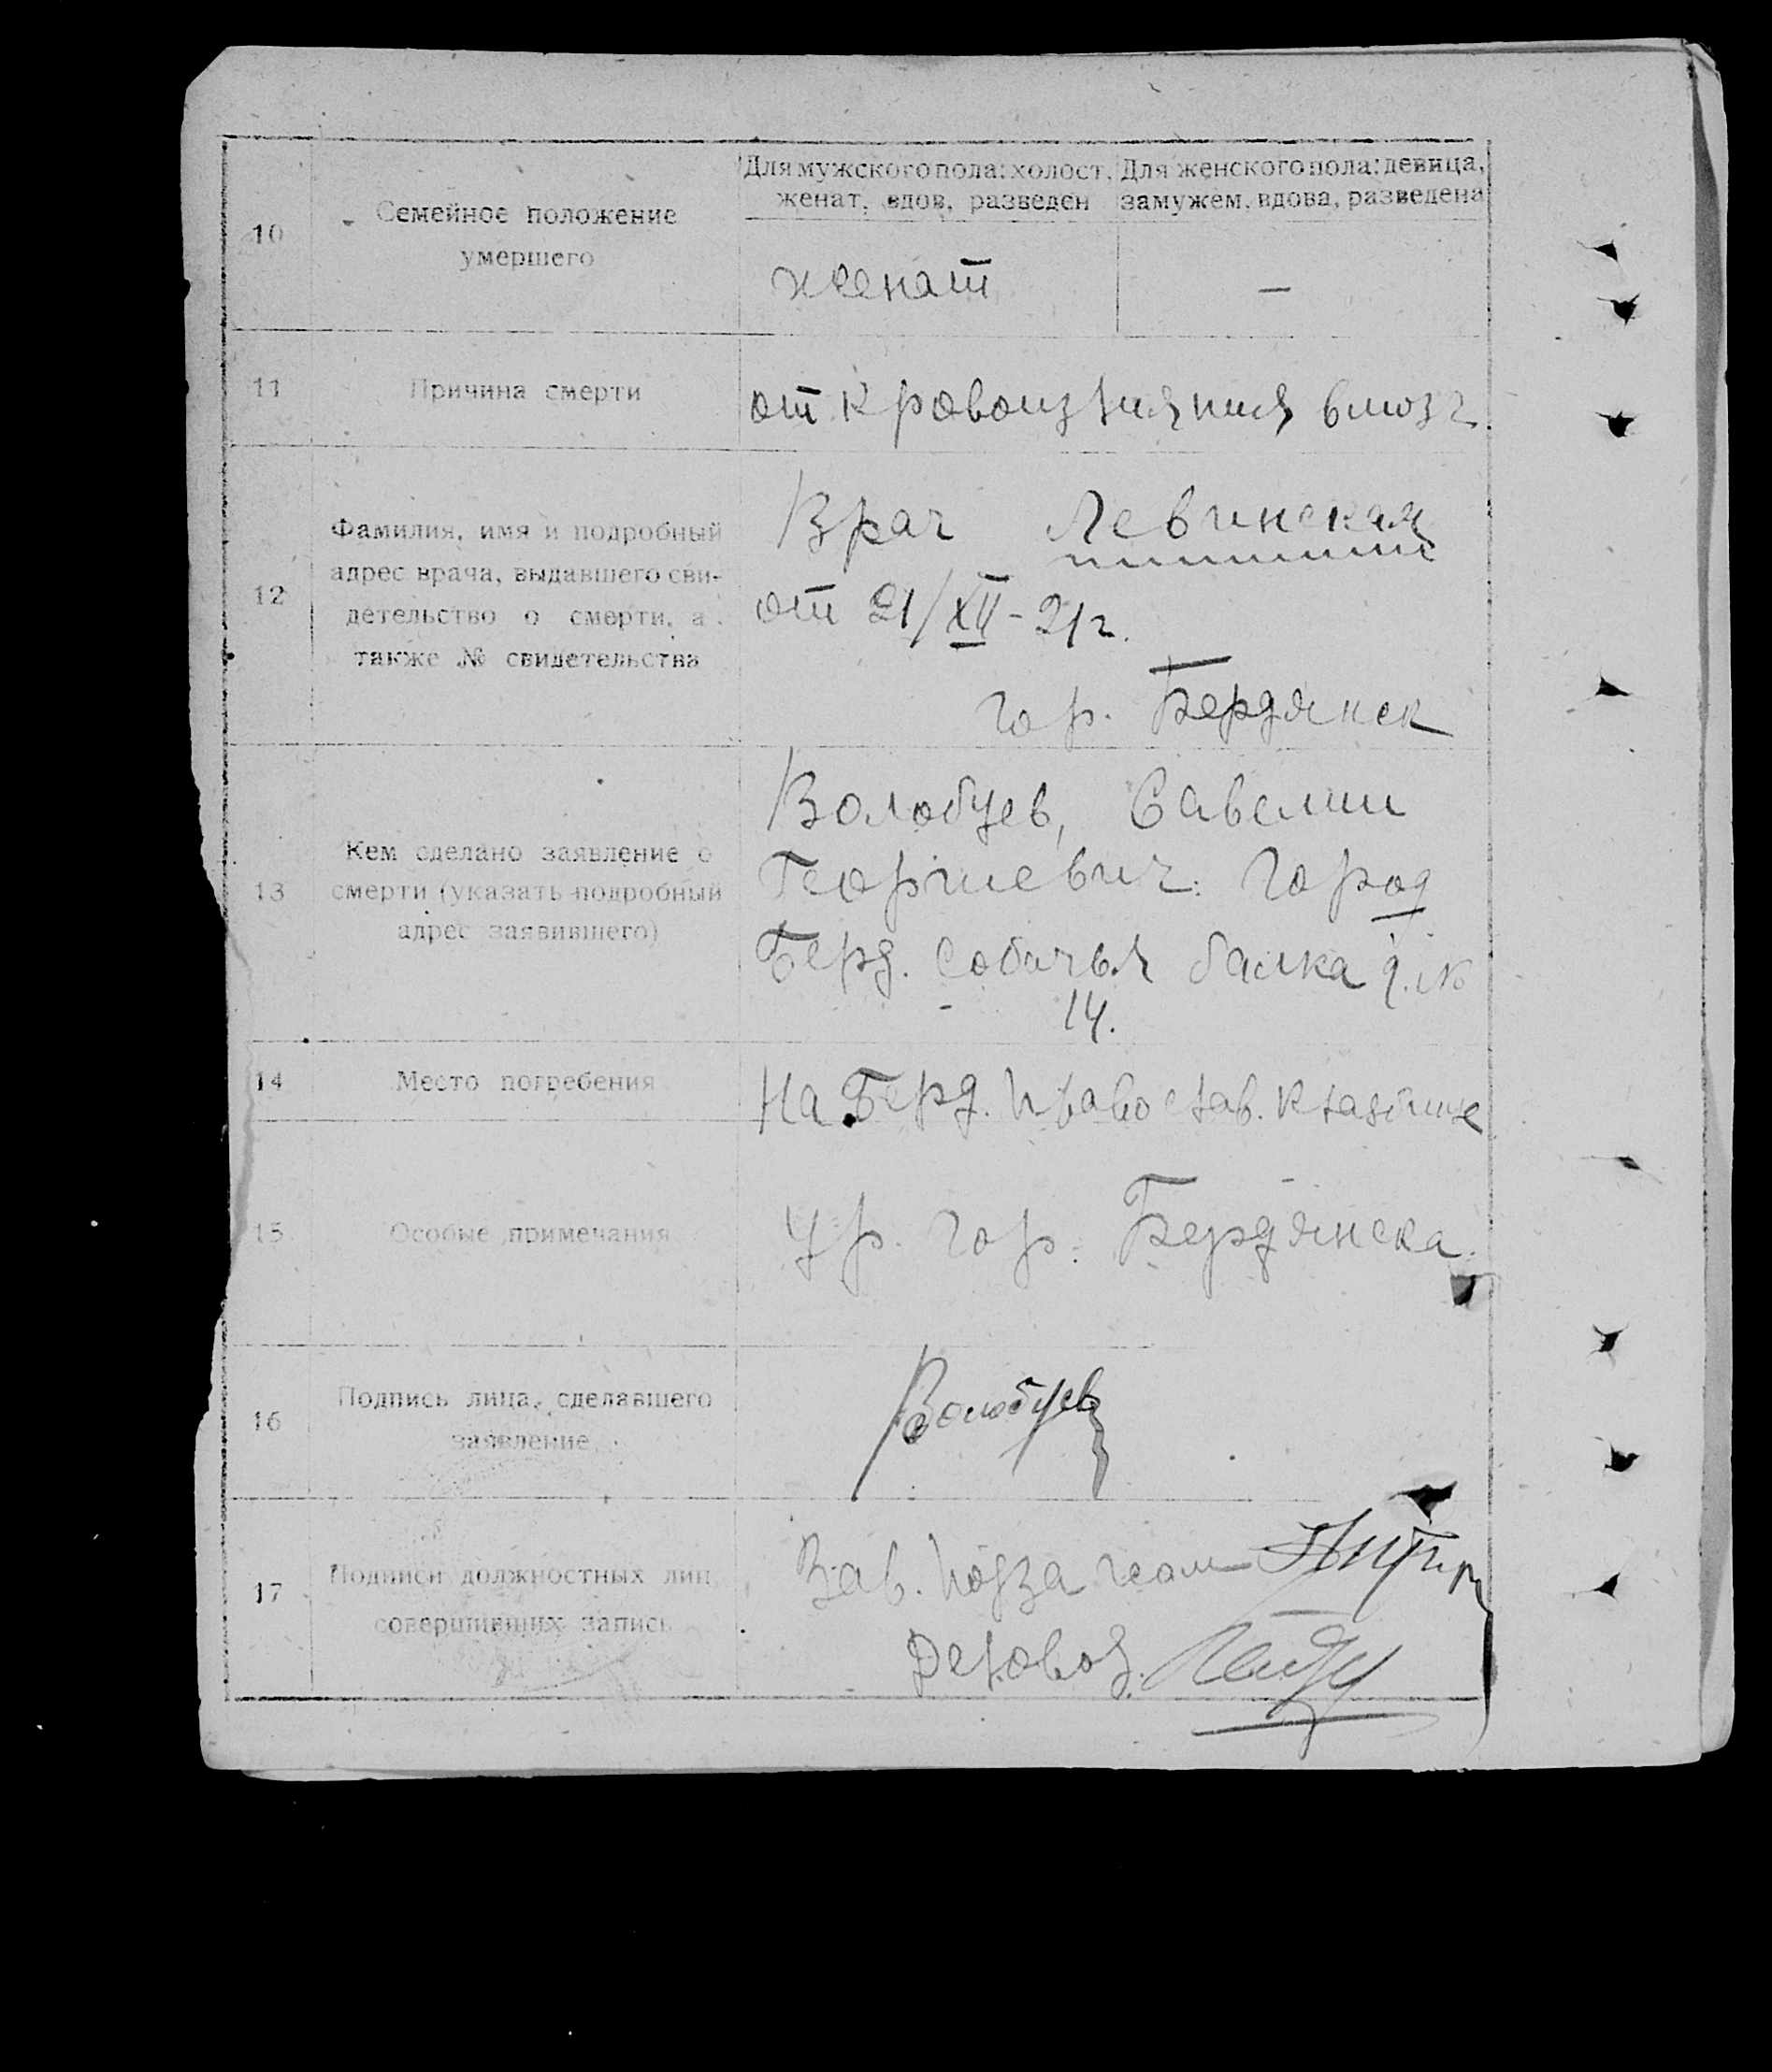 Для мужского пола: холост, женат, вдов, разведен
Для женского пола: девица, замужем, вдова, разведена
10
Семейное положение
умершего
женат
—
11
Причина смерти
от кровоизлияния в мозг
12
Фамилия, имя и подробный
адрес врача, выдавшего сви-
детельство о смерти, а
также № свидетельства
Врач Левинская
от 21/XII-21г.
гор. Бердянск
13
Кем сделано заявление о
смерти (указать подробный
адрес заявившего)
Волобуев, Савелии
Георгиевич. город
Берд. Собачья балка д. №
14.
14
Место погребения
На Берд. православ. кладбище
15
Особые примечания
Ур. гор. Бердянска.
16
Подпись лица, сделавшего
заявление
Волобуев
17
Подписи должностных лиц,
совершивших запись
Зав. Подза
Деловод.